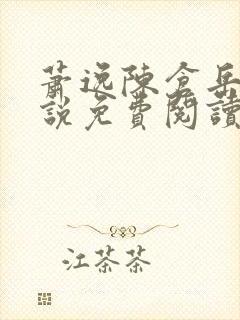 蕭逸陳倉岳
說免費閱讀
江茶茶